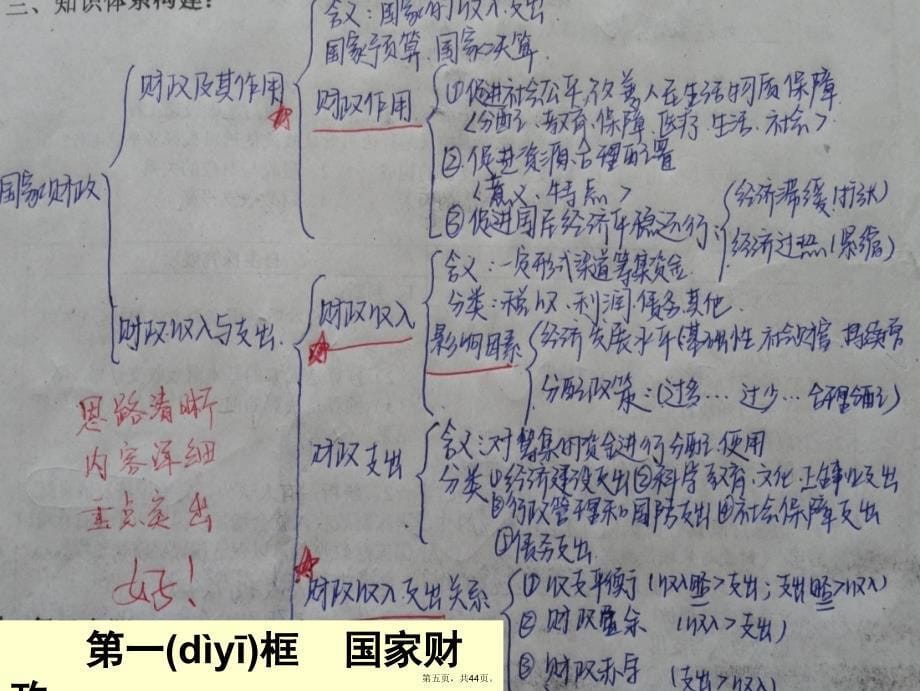 三、知识体系构建:
含义:国家的收入、支出
国家预算、国家决算
财政及其作用
财政作用
①促进社会公平、改善人民生活的物质保障
<分配、教育、保障、医疗、生活、社会>
②促进资源合理配置
<意义、特点>
③促进国民经济平稳运行:
经济滞缓(扩张)
经济过热(紧缩)
国家财政
财政收入与支出
财政收入
含义:一定形式渠道筹集资金
分类:税收、利润、债务、其他
影响因素
经济发展水平(基础性、社会财富、
分配政策:(过多…过少…合理分配)
财政支出
含义:对筹集的资金进行分配、使用
分类①经济建设支出②科学、教育、文化、卫生事业支出
③行政管理和国防支出④社会保障支出
⑤债务支出
财政收入支出关系
①收支平衡(收入略>支出;支出略>收入)
②财政盈余 (收入>支出)
③财政赤字 (支出>收入)
思路清晰
内容详细
重点突出
好!
第一(dìyī)框 国家财
政
第五页,共44页。